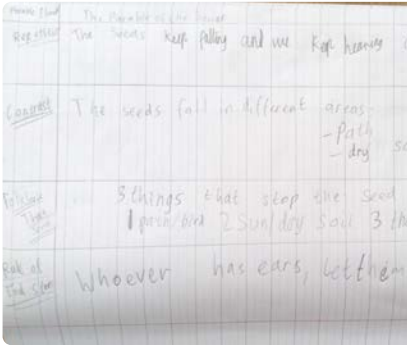 The Parable of the Sower
Repetition The seeds keep falling and we keep hearing
Contrast The seeds fall in different areas.
- Path
- dry so
3 things that stop the seed
1 path/bird 2 Sun/dry soil 3 th
Rule of
End Whoever has ears, let them